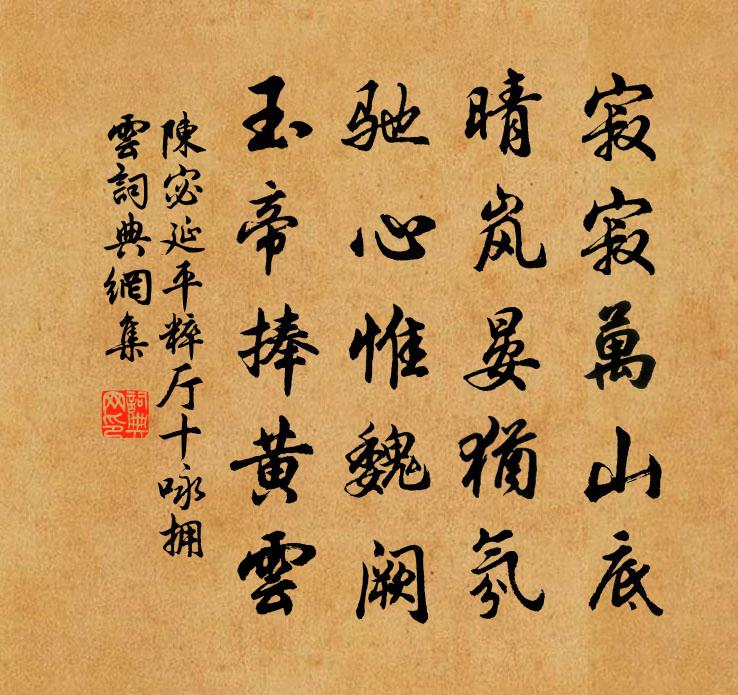 寂寂萬山底
晴岚晏猶氛
驰心惟魏阙
玉帝捧黄雲
陳宓延平粹厅十咏拥
雲詞典網集
詞典网印